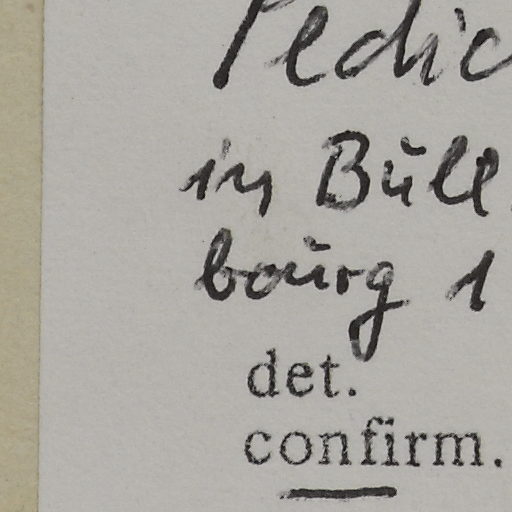 Pedic
in Bull.
bourg 1
det.
confirm.